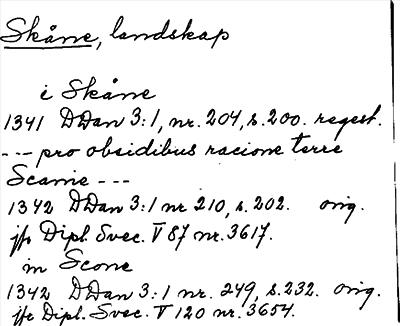 Skåne, landskap
i Skåne
1341 DDan 3:1, nr. 204, s.200. regest.
--- pro obsidibus racione terre
Scanie ---
1342 DDan 3:1 nr 210, s.202. orig.
jfr Dipl. Svec. V 87 nr. 3617.
in Scone
1342 DDan 3:1 nr. 249, s.232. orig.
jfr Dipl. Svec. V 120 nr. 3654.